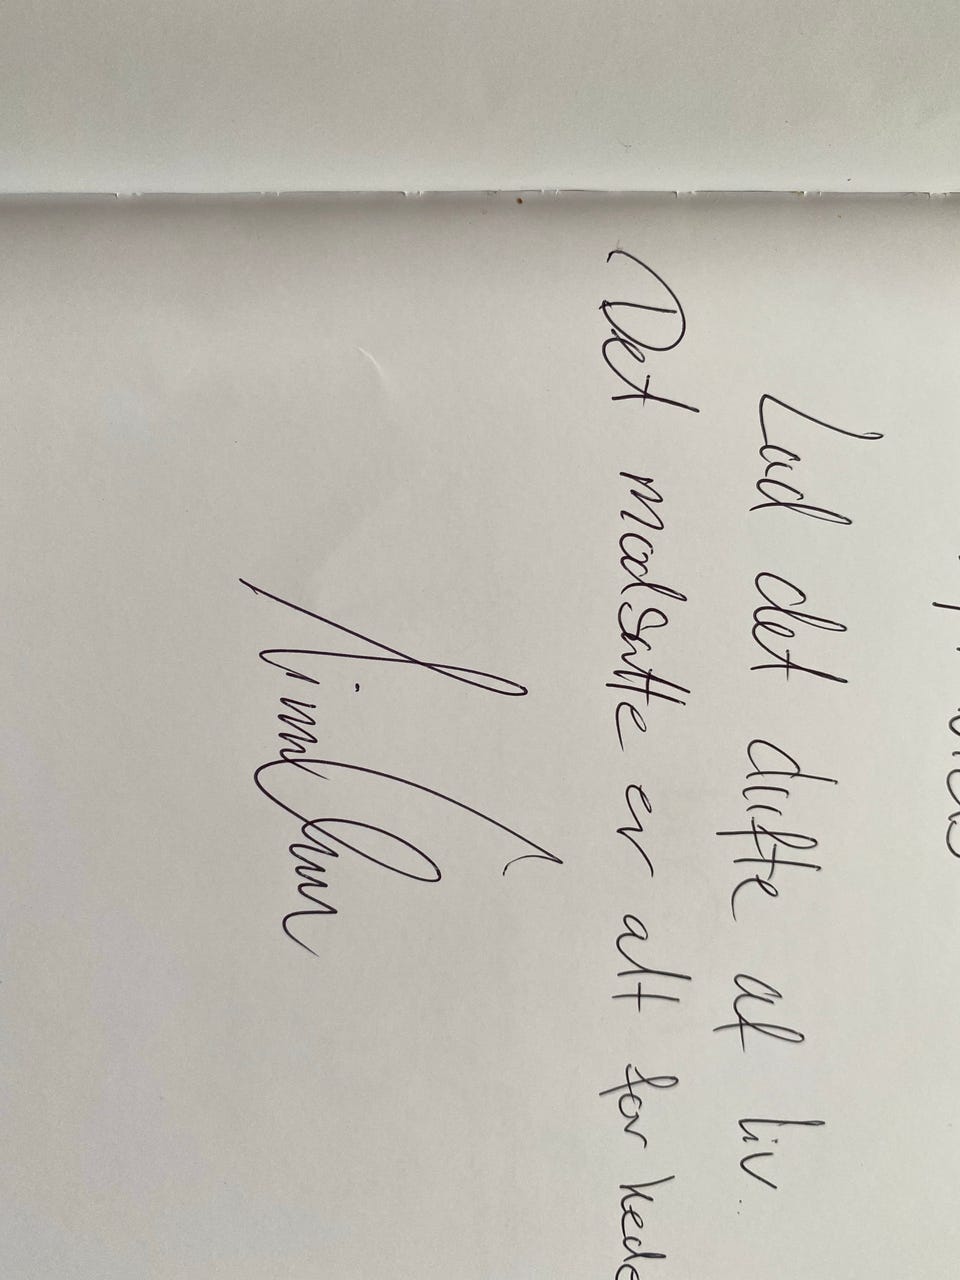 Lad det dufte af liv..
Det modsatte er alt for kede